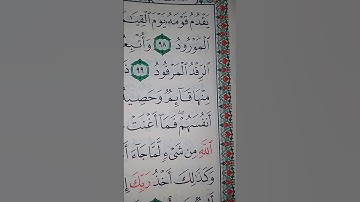 يَقْدُمُ قَوْمَهُۥ يَوْمَ ٱلْقِيَـ
ٱلْمَوْرُودُ ٩٨ وَأُتْبِعُ
ٱلرِّفْدُ ٱلْمَرْفُودُ ٩٩ ذَ
مِنْهَا قَآئِمٌ وَحَصِيد
أَنفُسَهُمْ ۖ فَمَآ أَغْنَتْ
ٱللَّهِ مِن شَىْءٍ لَّمَّا جَآءَ أَ
وَكَذَٰلِكَ أَخْذُ رَبِّكَ إِ